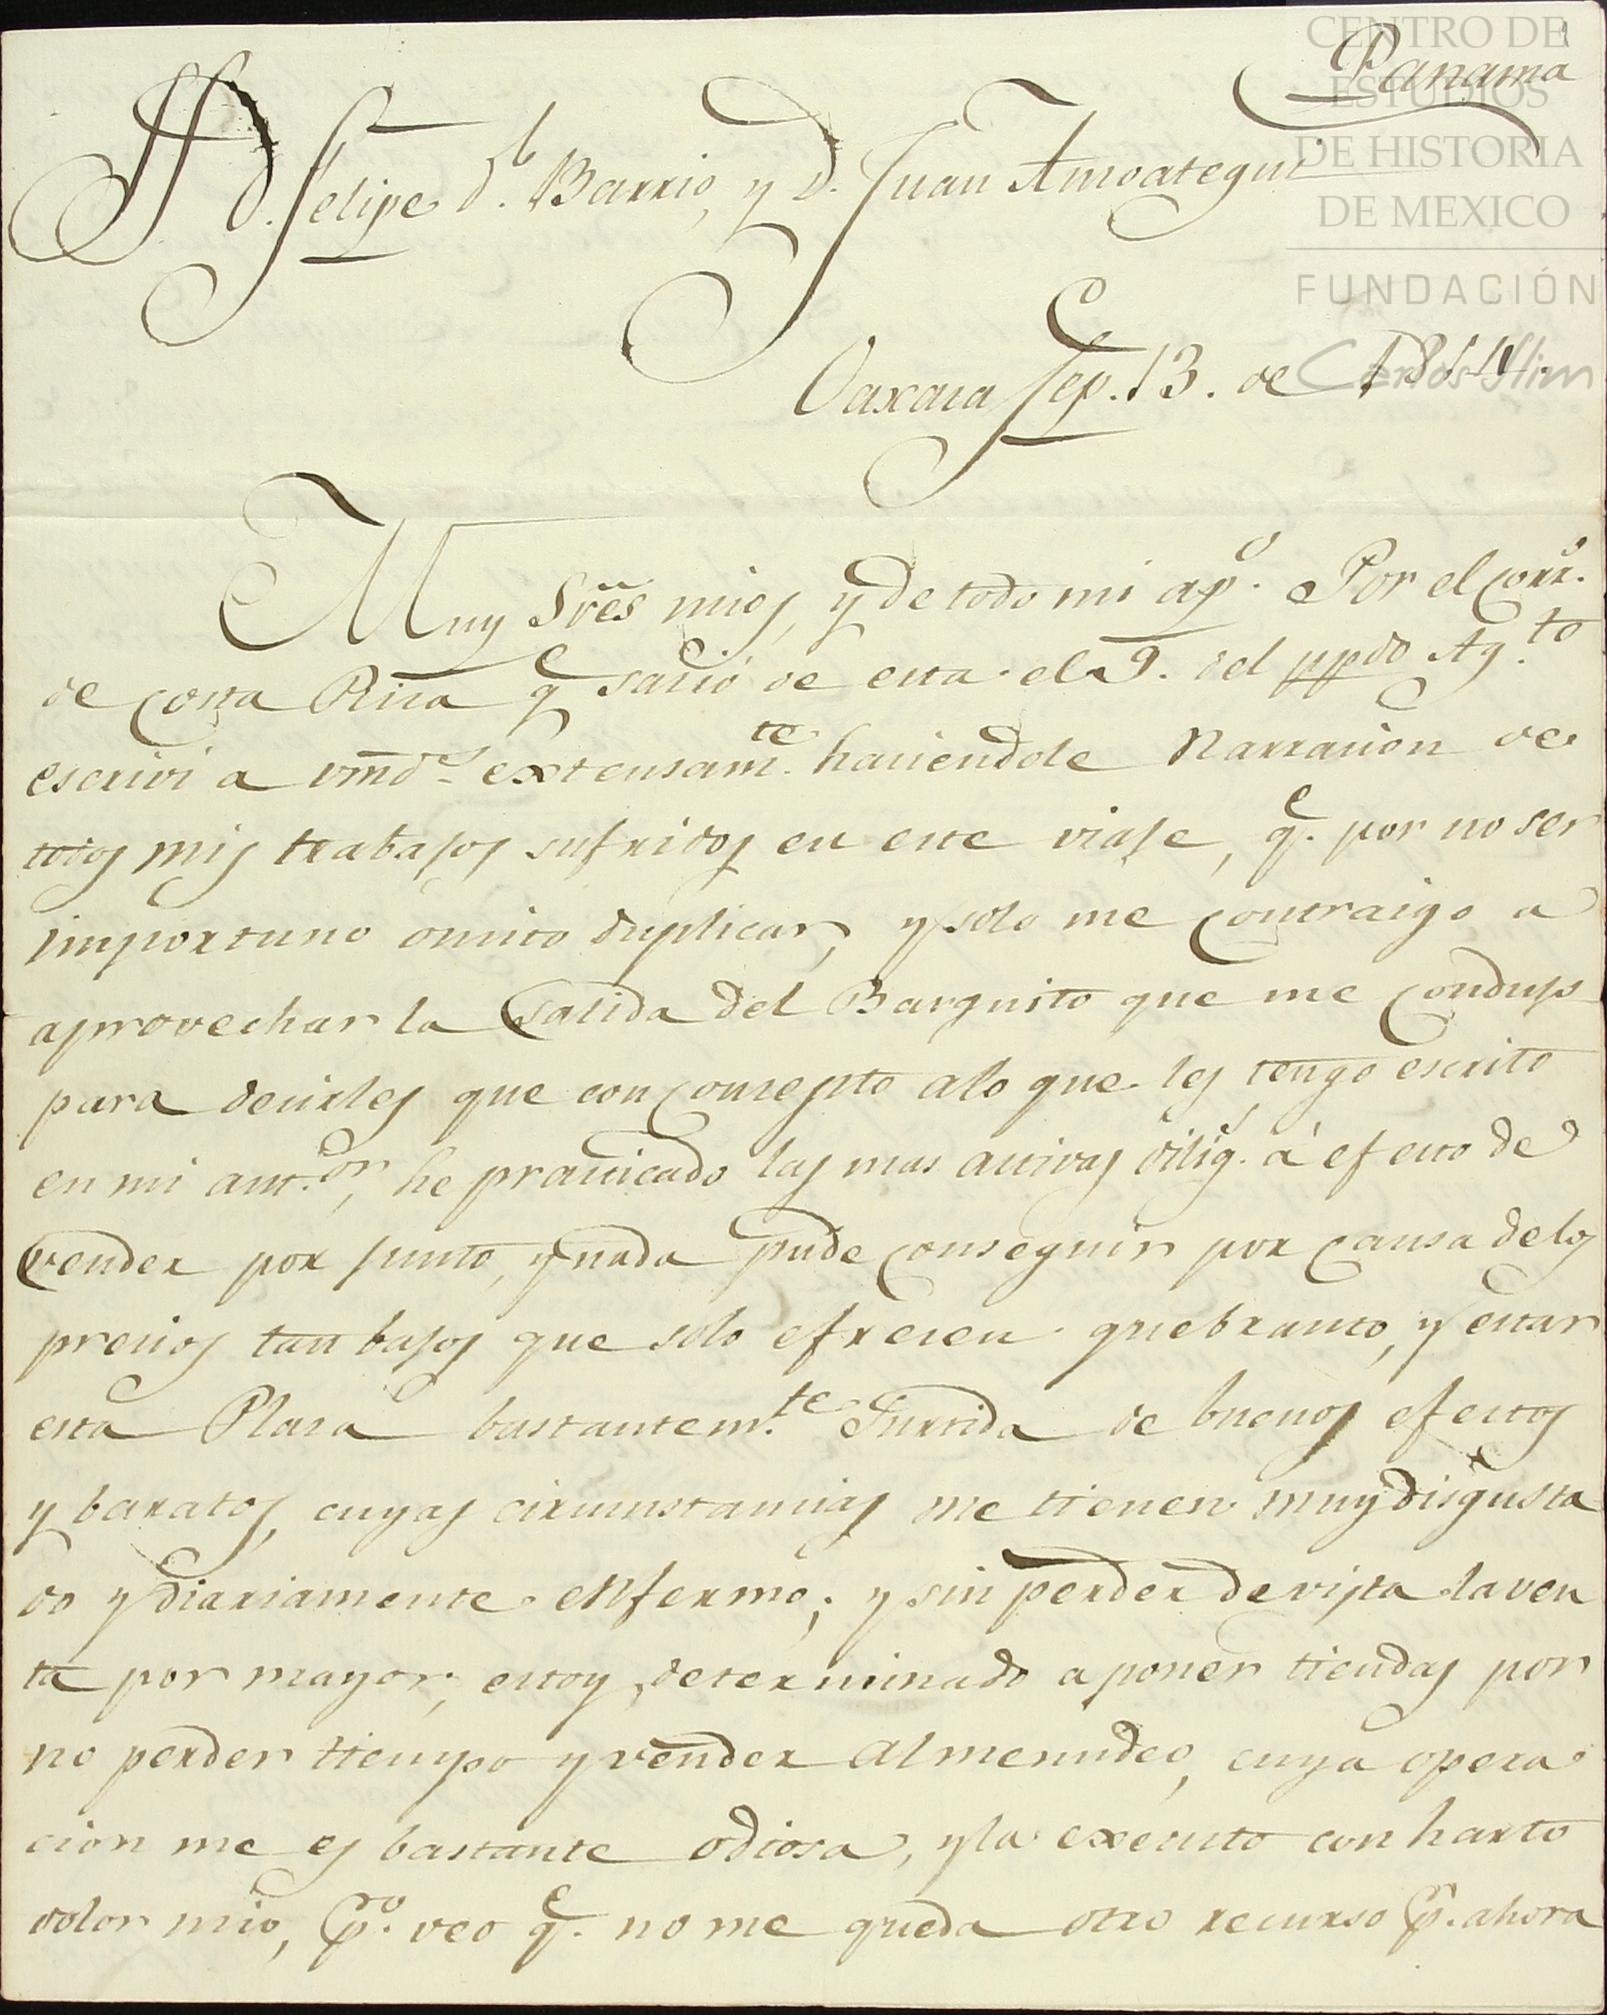 CENTRO DE
ESTUDIOS
DE HISTORIA
DE MEXICO
FUNDACIÓN
Carlos Slim
Panama
SS. D. Felipe d.l Barrio, y D. Juan Amoategui
Oaxaca Sep.e 13. de
Muy Sres mios, y de todo mi ap.o Por el Corr.o
de Costa Rica q.e salió de esta el 9. del pp.do Ag.to
escrivi a vmds extensam.te haciendole Narracion de
todos mis trabajos sufridos en este viaje, q.e por no ser
importuno omito duplicar, y solo me Contraigo a
aprovechar la Salida del Barquito que me Condujo
para decirles que con Concepto alo que les tengo escrito
en mi ant.or, he practicado las mas activas dilig.s á efecto de
vender por junto, y nada pude Conseguir por Causa delos
precios tan bajos que solo ofrecen quebranto, y estar
esta Plasa bastantem.te Surtida de buenos efectos
y baratos, cuyas circunstancias me tienen muy disgusta
do y diariamente enfermo; y sin perder de vista la ven
ta por mayor, estoy determinado a poner tiendas por
no perder tiempo y vender al menudeo, cuya opera
cion me es bastante odiosa, y la executo con harto
dolor mio, p.ro veo q.e no me queda otro recurso p.r ahora